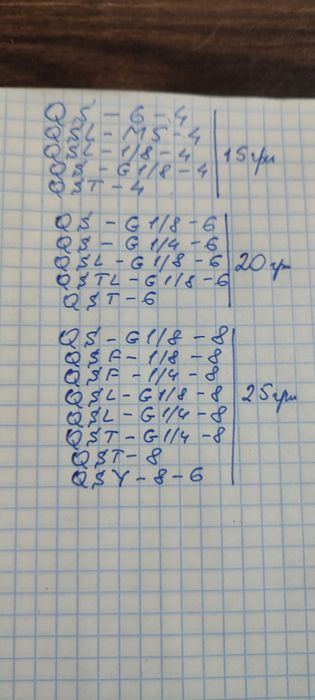 QS - 6 - 4
QSL - M5 - 4
QSL - 1/8 - 4
QS - G1/8 - 4
QST - 4
15 грн
QS - G 1/8 - 6
QS - G 1/4 - 6
QSL - G 1/8 - 6
QSTL - G 1/8 - 6
QST - 6
20 грн
QS - G 1/8 - 8
QSF - 1/8 - 8
QSF - 1/4 - 8
QSL - G1/8 - 8
QSL - G1/4 - 8
QST - G1/4 - 8
QST - 8
QSY - 8 - 6
25 грн